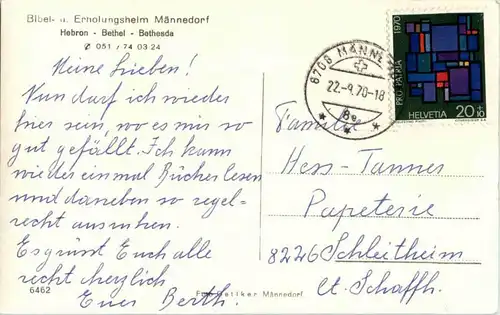 Bibel- u. Erholungsheim Männedorf
Hebron - Bethel - Bethesda
✆ 051 / 74 03 24
Meine Lieben!
Nun darf ich wieder
hier sein, wo es mir so
gut gefällt. Ich kann
wieder einmal Bücher lesen
und daneben so regel-
recht ausruhen.
Es grüsst Euch alle
recht herzlich
Euer Berth.
6462
Männedorf
8708 MÄNNE
22.-9.70-18
PRO PATRIA 1970
HELVETIA 20+10
Familie
Hess-Tanner
Papeterie
8226 Schleitheim
Ct. Schaffh.